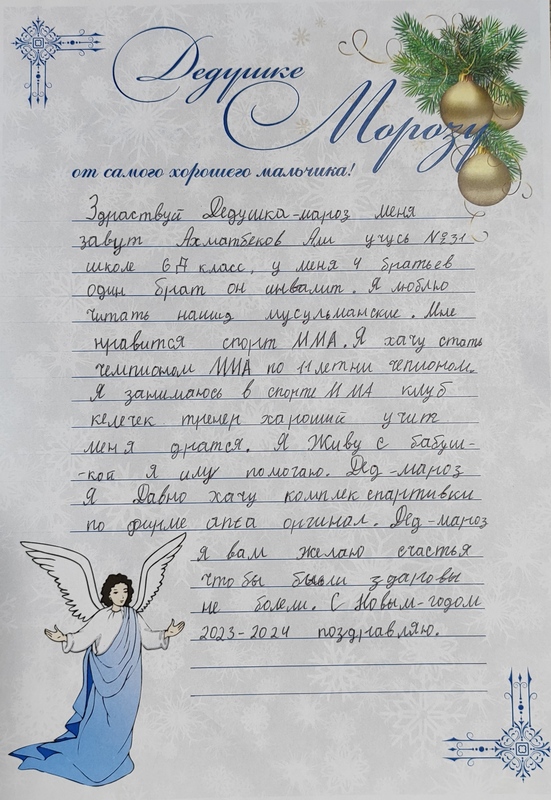 Дедушке
Морозу
от самого хорошего мальчика!
Здраствуй Дедушка-мароз меня
завут Ахматбеков Аш учусь №31
школе 6Д класс, у меня 4 братьев
один брат он инвалит. Я люблю
читать намиз мусульманские. Мне
нравится спорт ММА. Я хачу стать
чемпионом ММА по 11 летни чепионом.
Я занимаюсь в спорте ММА клуб
келечек тренер хароший учит
меня дратся. Я Живу с бабуш-
-кой я иму помогаю. Дед-мароз
Я Давно хачу комплек спартивки
по фирме anta оргинал. Дед-мароз
я вам желаю счастья
что бы были здаровы
не болели. С Новым-годом
2023-2024 поздравляю.